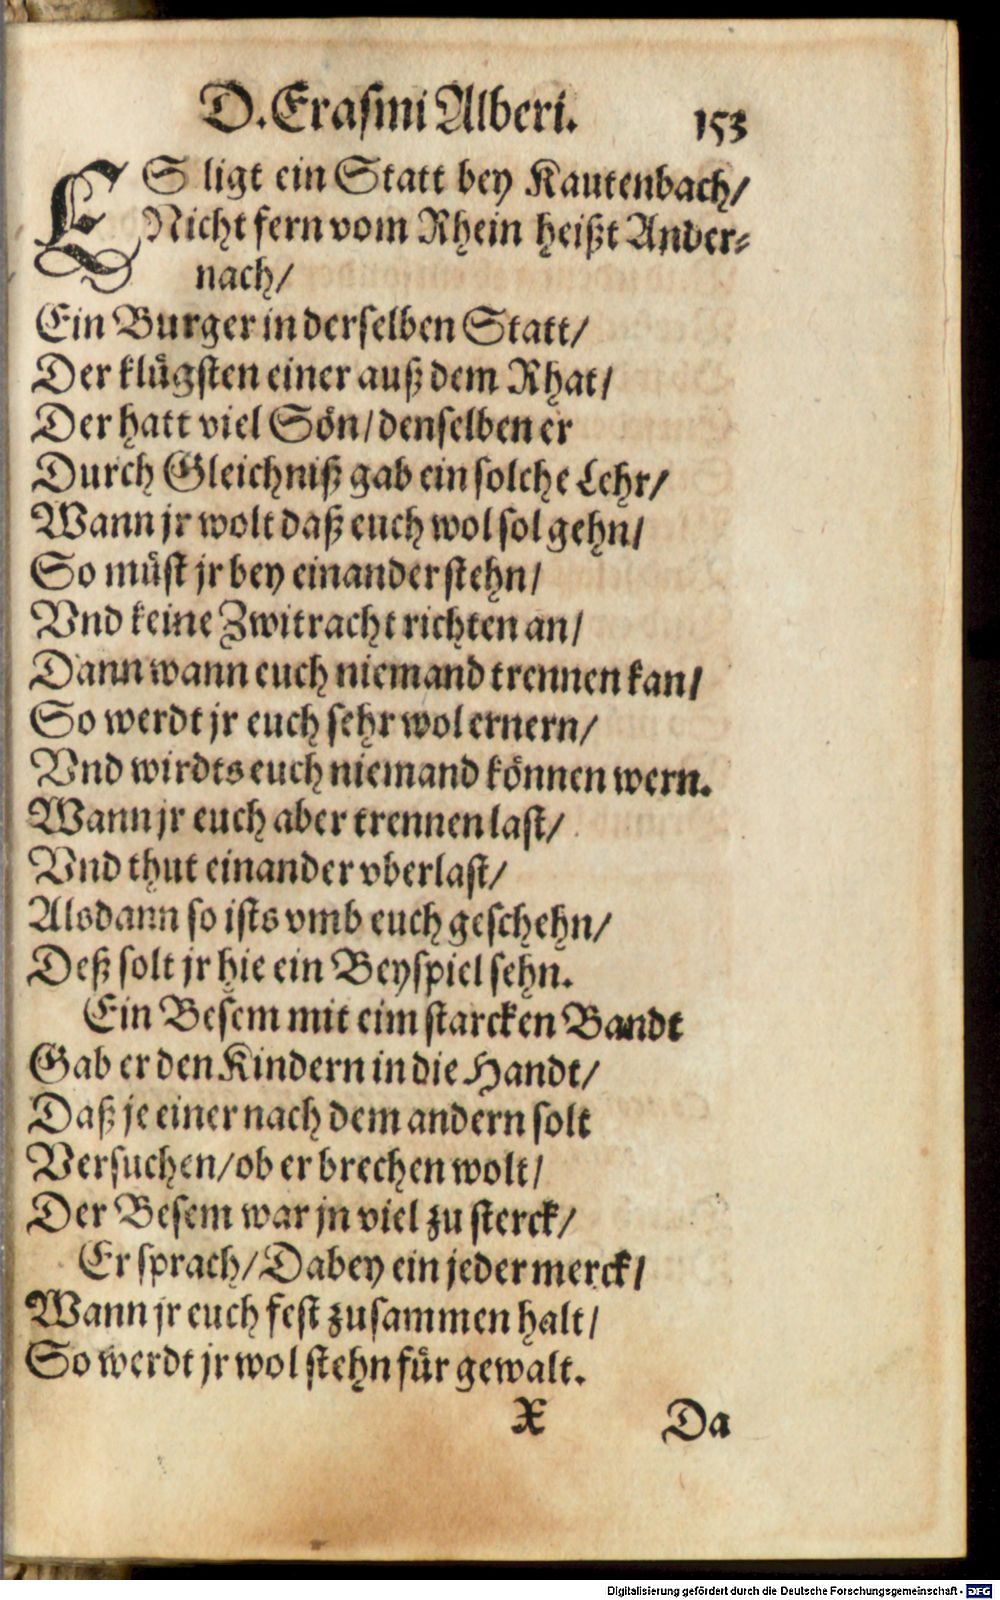 D. Erasmi Alberi. 153
ES ligt ein Statt bey Kautenbach/
Nicht fern vom Rhein heißt Ander-
nach/
Ein Burger in derselben Statt/
Der klügsten einer auß dem Rhat/
Der hatt viel Sön/ denselben er
Durch Gleichniß gab ein solche Lehr/
Wann jr wolt daß euch wol sol gehn/
So müst jr bey einander stehn/
Vnd keine Zwitracht richten an/
Dann wann euch niemand trennen kan/
So werdt jr euch sehr wol ernern/
Vnd wirdts euch niemand können wern.
Wann jr euch aber trennen last/
Vnd thut einander vberlast/
Alsdann so ists vmb euch geschehn/
Deß solt jr hie ein Beyspiel sehn.
Ein Besem mit eim starcken Bandt
Gab er den Kindern in die Handt/
Daß je einer nach dem andern solt
Versuchen/ ob er brechen wolt/
Der Besem war jn viel zu sterck/
Er sprach/ Dabey ein jeder merck/
Wann jr euch fest zusammen halt/
So werdt jr wol stehn für gewalt.
X Da
Digitalisierung gefördert durch die Deutsche Forschungsgemeinschaft - DFG